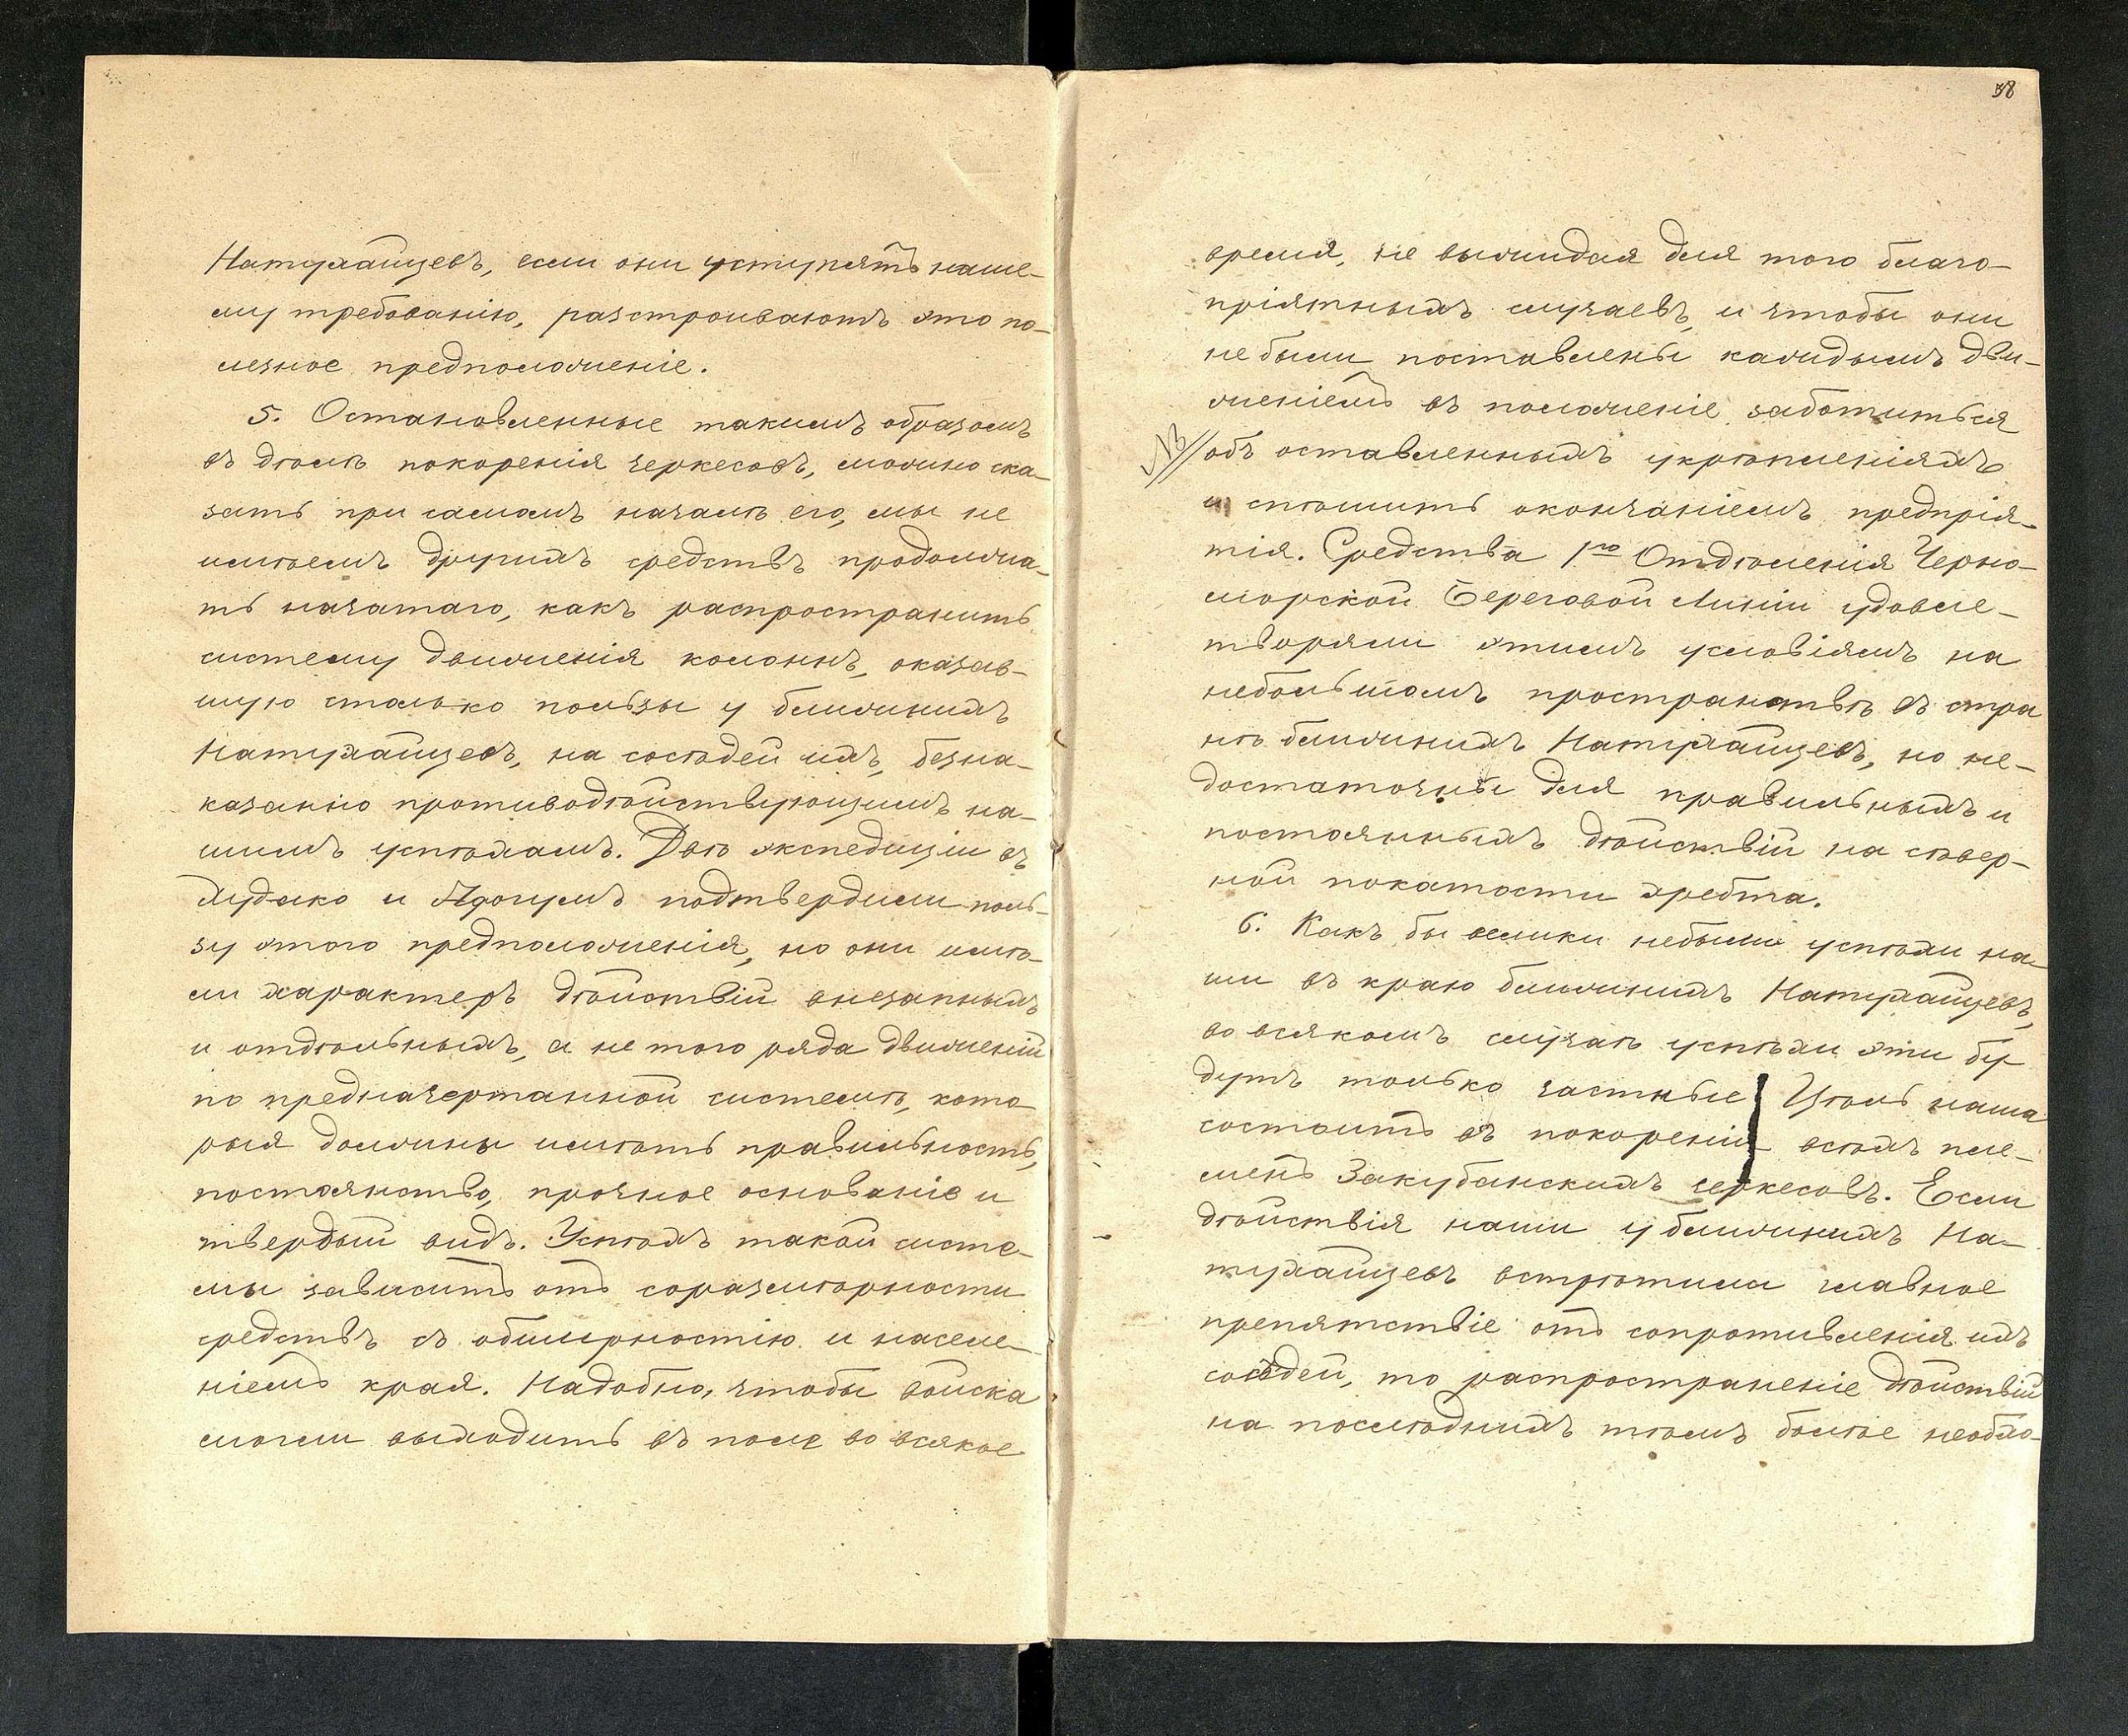 Натухайцевъ, если они уступятъ наше-
му требованію, разстроиваютъ это по-
лезное предположеніе.
5. Остановленные такимъ образомъ
въ дѣлѣ покоренія черкесовъ, можно ска-
зать при самомъ началѣ его, мы не
имѣемъ другихъ средствъ продолжа-
ть начатаго, какъ распространить
систему движенія колоннъ, оказав-
шую столько пользы у ближнихъ
Натухайцевъ, на сосѣдей ихъ, безна-
казанно противодѣйствующимъ на-
шимъ успѣхамъ. Двѣ экспедиціи въ
Худако и Адогумъ подтвердили поль-
зу этого предположенія, но они имѣ-
ли характеръ дѣйствій внезапныхъ
и отдѣльныхъ, а не того ряда движеній
по предначертанной системѣ, кото-
рыя должны имѣть правильность,
постоянство, прочное основаніе и
твердый видъ. Успѣхъ такой систе-
мы зависитъ отъ соразмѣрности
средствъ съ обширностію и населе-
ніемъ края. Надобно, чтобы войска
могли выходить въ поле во всякое
38
время, не выжидая для того благо-
пріятныхъ случаевъ, и чтобы они
не были поставлены каждымъ дви-
женіемъ въ положеніе заботиться
NB // объ оставленныхъ укрѣпленіяхъ
и спѣшить окончаніемъ предпрія-
тія. Средства 1го Отдѣленія Черно-
морской Береговой Линіи удовле-
творяли этимъ условіямъ на
небольшомъ пространствѣ въ стра
нѣ ближнихъ Натухайцевъ, но не-
достаточны для правильныхъ и
постоянныхъ дѣйствій на сѣвер-
ной покатости хребта.
6. Какъ бы велики небыли успѣхи на-
ши въ краю ближнихъ Натухайцевъ,
во всякомъ случаѣ успѣхи эти бу
дутъ только частные Цѣль наша
состоитъ въ покореніи всѣхъ пле-
менъ Закубанскихъ черкесовъ. Если
дѣйствія наши у ближнихъ На-
тухайцевъ встрѣтили главное
препятствіе отъ сопротивленія ихъ
сосѣдей, то распространеніе дѣйствій
на послѣднихъ тѣмъ болѣе необхо-